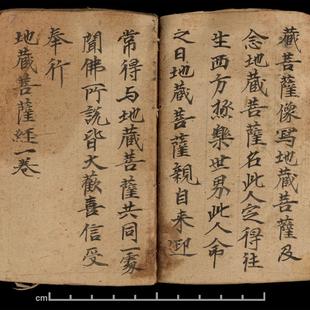 藏菩薩像寫地藏菩薩及
念地藏菩薩名此人定得往
生西方極樂世界此人命
之日地藏菩薩親自来迎
常得与地藏菩薩共同一處
聞佛所說皆大歡喜信受
奉行
地藏菩薩經一卷
cm